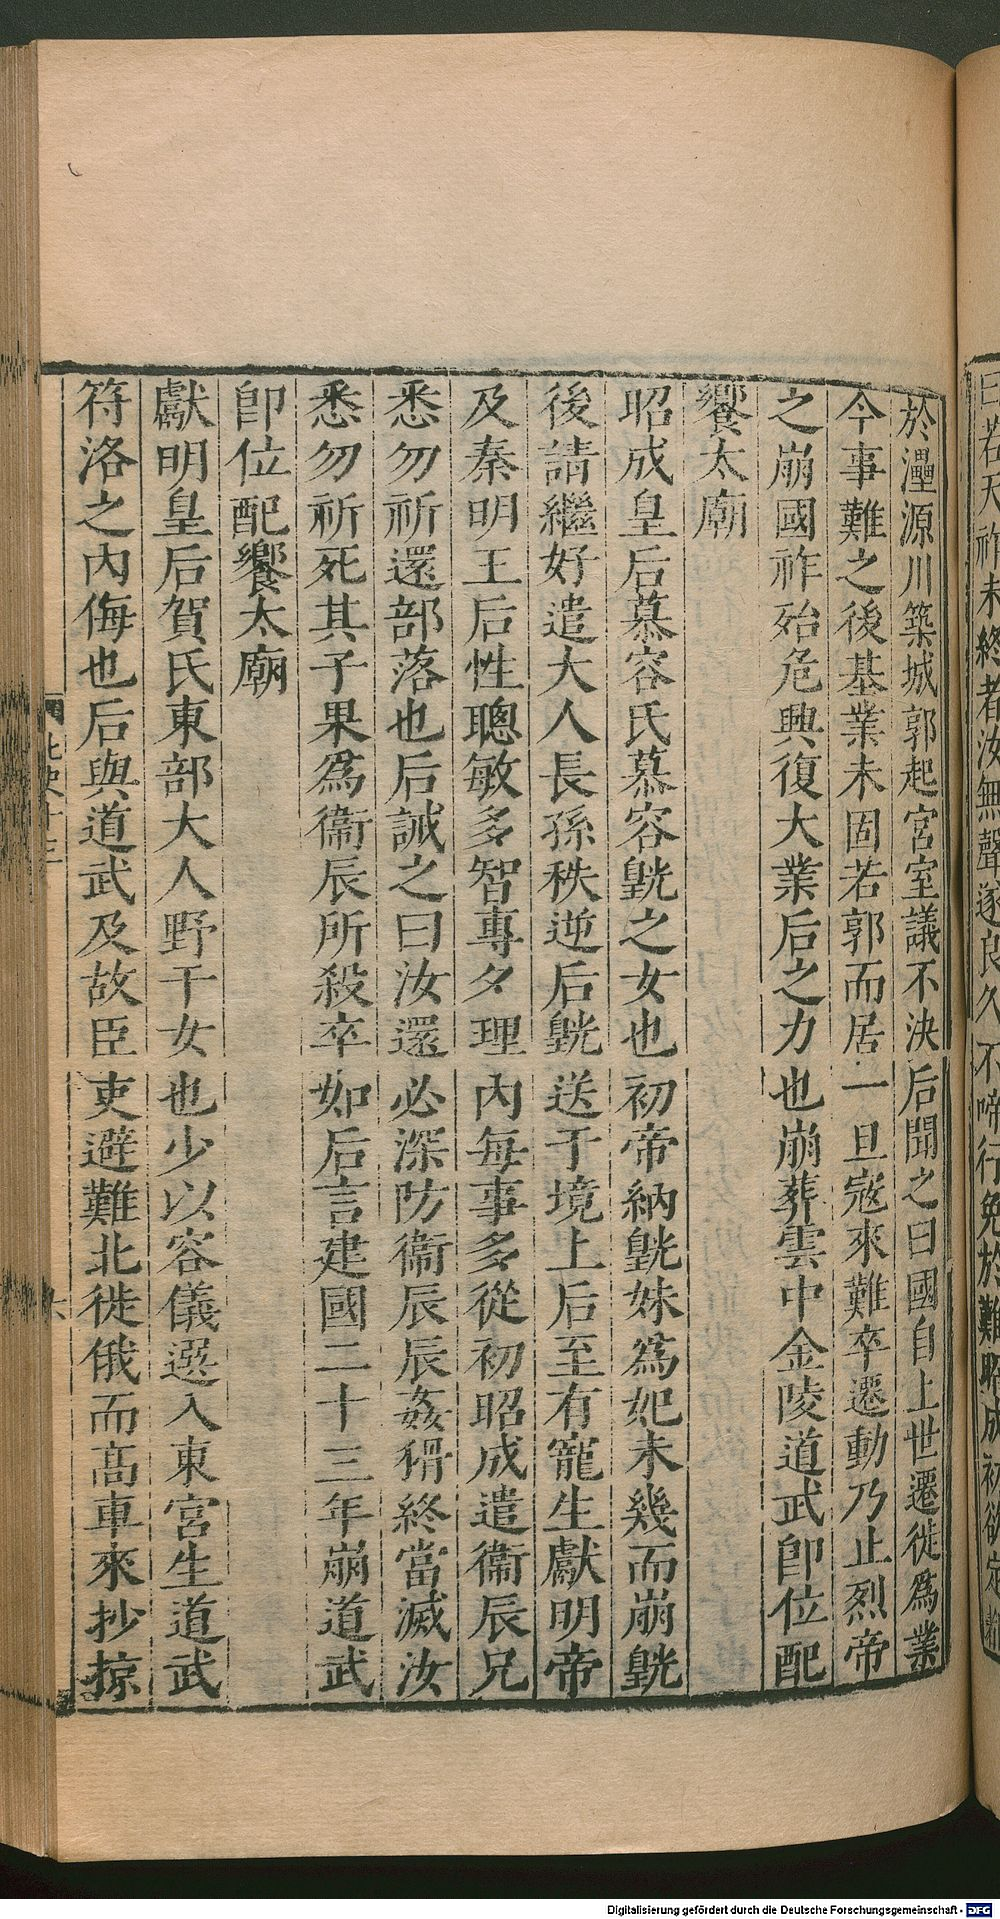 曰若天祚未終者汝無聲遂良久不啼行免於難昭成初欲定都
於灅源川築城郭起宮室議不決后聞之曰國自上世遷徙爲業
今事難之後基業未固若郭而居一旦寇來難卒遷動乃止烈帝
之崩國祚殆危興復大業后之力也崩葬雲中金陵道武卽位配
饗太廟
昭成皇后慕容氏慕容皝之女也初帝納皝妹爲妃未幾而崩皝
後請繼好遣大人長孫秩逆后皝送于境上后至有寵生獻明帝
及秦明王后性聰敏多智專夕理內每事多從初昭成遣衞辰兄
悉勿祈還部落也后誡之曰汝還必深防衞辰辰姦猾終當滅汝
悉勿祈死其子果爲衞辰所殺卒如后言建國二十三年崩道武
卽位配饗太廟
獻明皇后賀氏東部大人野干女也少以容儀選入東宮生道武
苻洛之內侮也后與道武及故臣吏避難北徙俄而高車來抄掠
北史十三
六
Digitalisierung gefördert durch die Deutsche Forschungsgemeinschaft - DFG